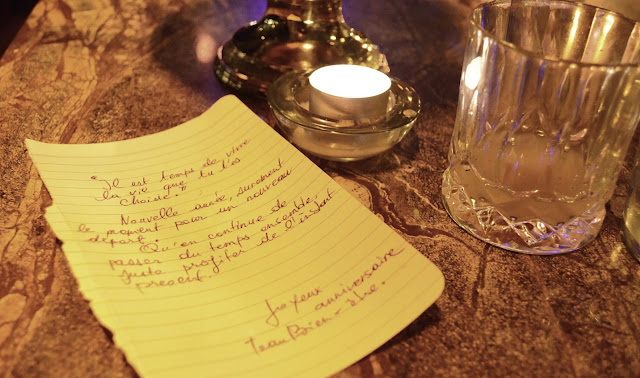 "Il est temps de vivre
la vie que tu t'es
choisie."
Nouvelle année, surement
le moment pour un nouveau
départ.
Qu'on continue de
passer du temps ensemble,
juste profiter de l'instant
présent.
Joyeux
anniversaire
Jean Bien-être.